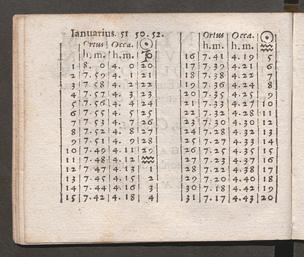 Ianuarius. 51 50. 52.
Ortus Occa. ☉
h. m. h. m. ♑
1 8. 0 4. 0 20
2 7.59 4. 1 21
3 7.58 4. 2 22
4 7.57 4. 3 23
5 7.56 4. 4 24
6 7.55 4. 5 25
7 7.53 4. 7 26
8 7.52 4. 8 27
9 7.51 4. 9 28
10 7.49 4.11 29
11 7.48 4.12 ♒
12 7.47 4.13 1
13 7.45 4.15 2
14 7.44 4.16 3
15 7.42 4.18 4
Ortus Occa. ☉
h. m. h. m. ♒
16 7.41 4.19 5
17 7.39 4.21 6
18 7.38 4.22 7
19 7.36 4.24 8
20 7.35 4.25 9
21 7.33 4.27 10
22 7.32 4.28 11
23 7.30 4.30 12
24 7.28 4.32 13
25 7.27 4.33 14
26 7.25 4.35 15
27 7.23 4.37 16
28 7.22 4.38 17
29 7.20 4.40 18
30 7.18 4.42 19
31 7.17 4.43 20